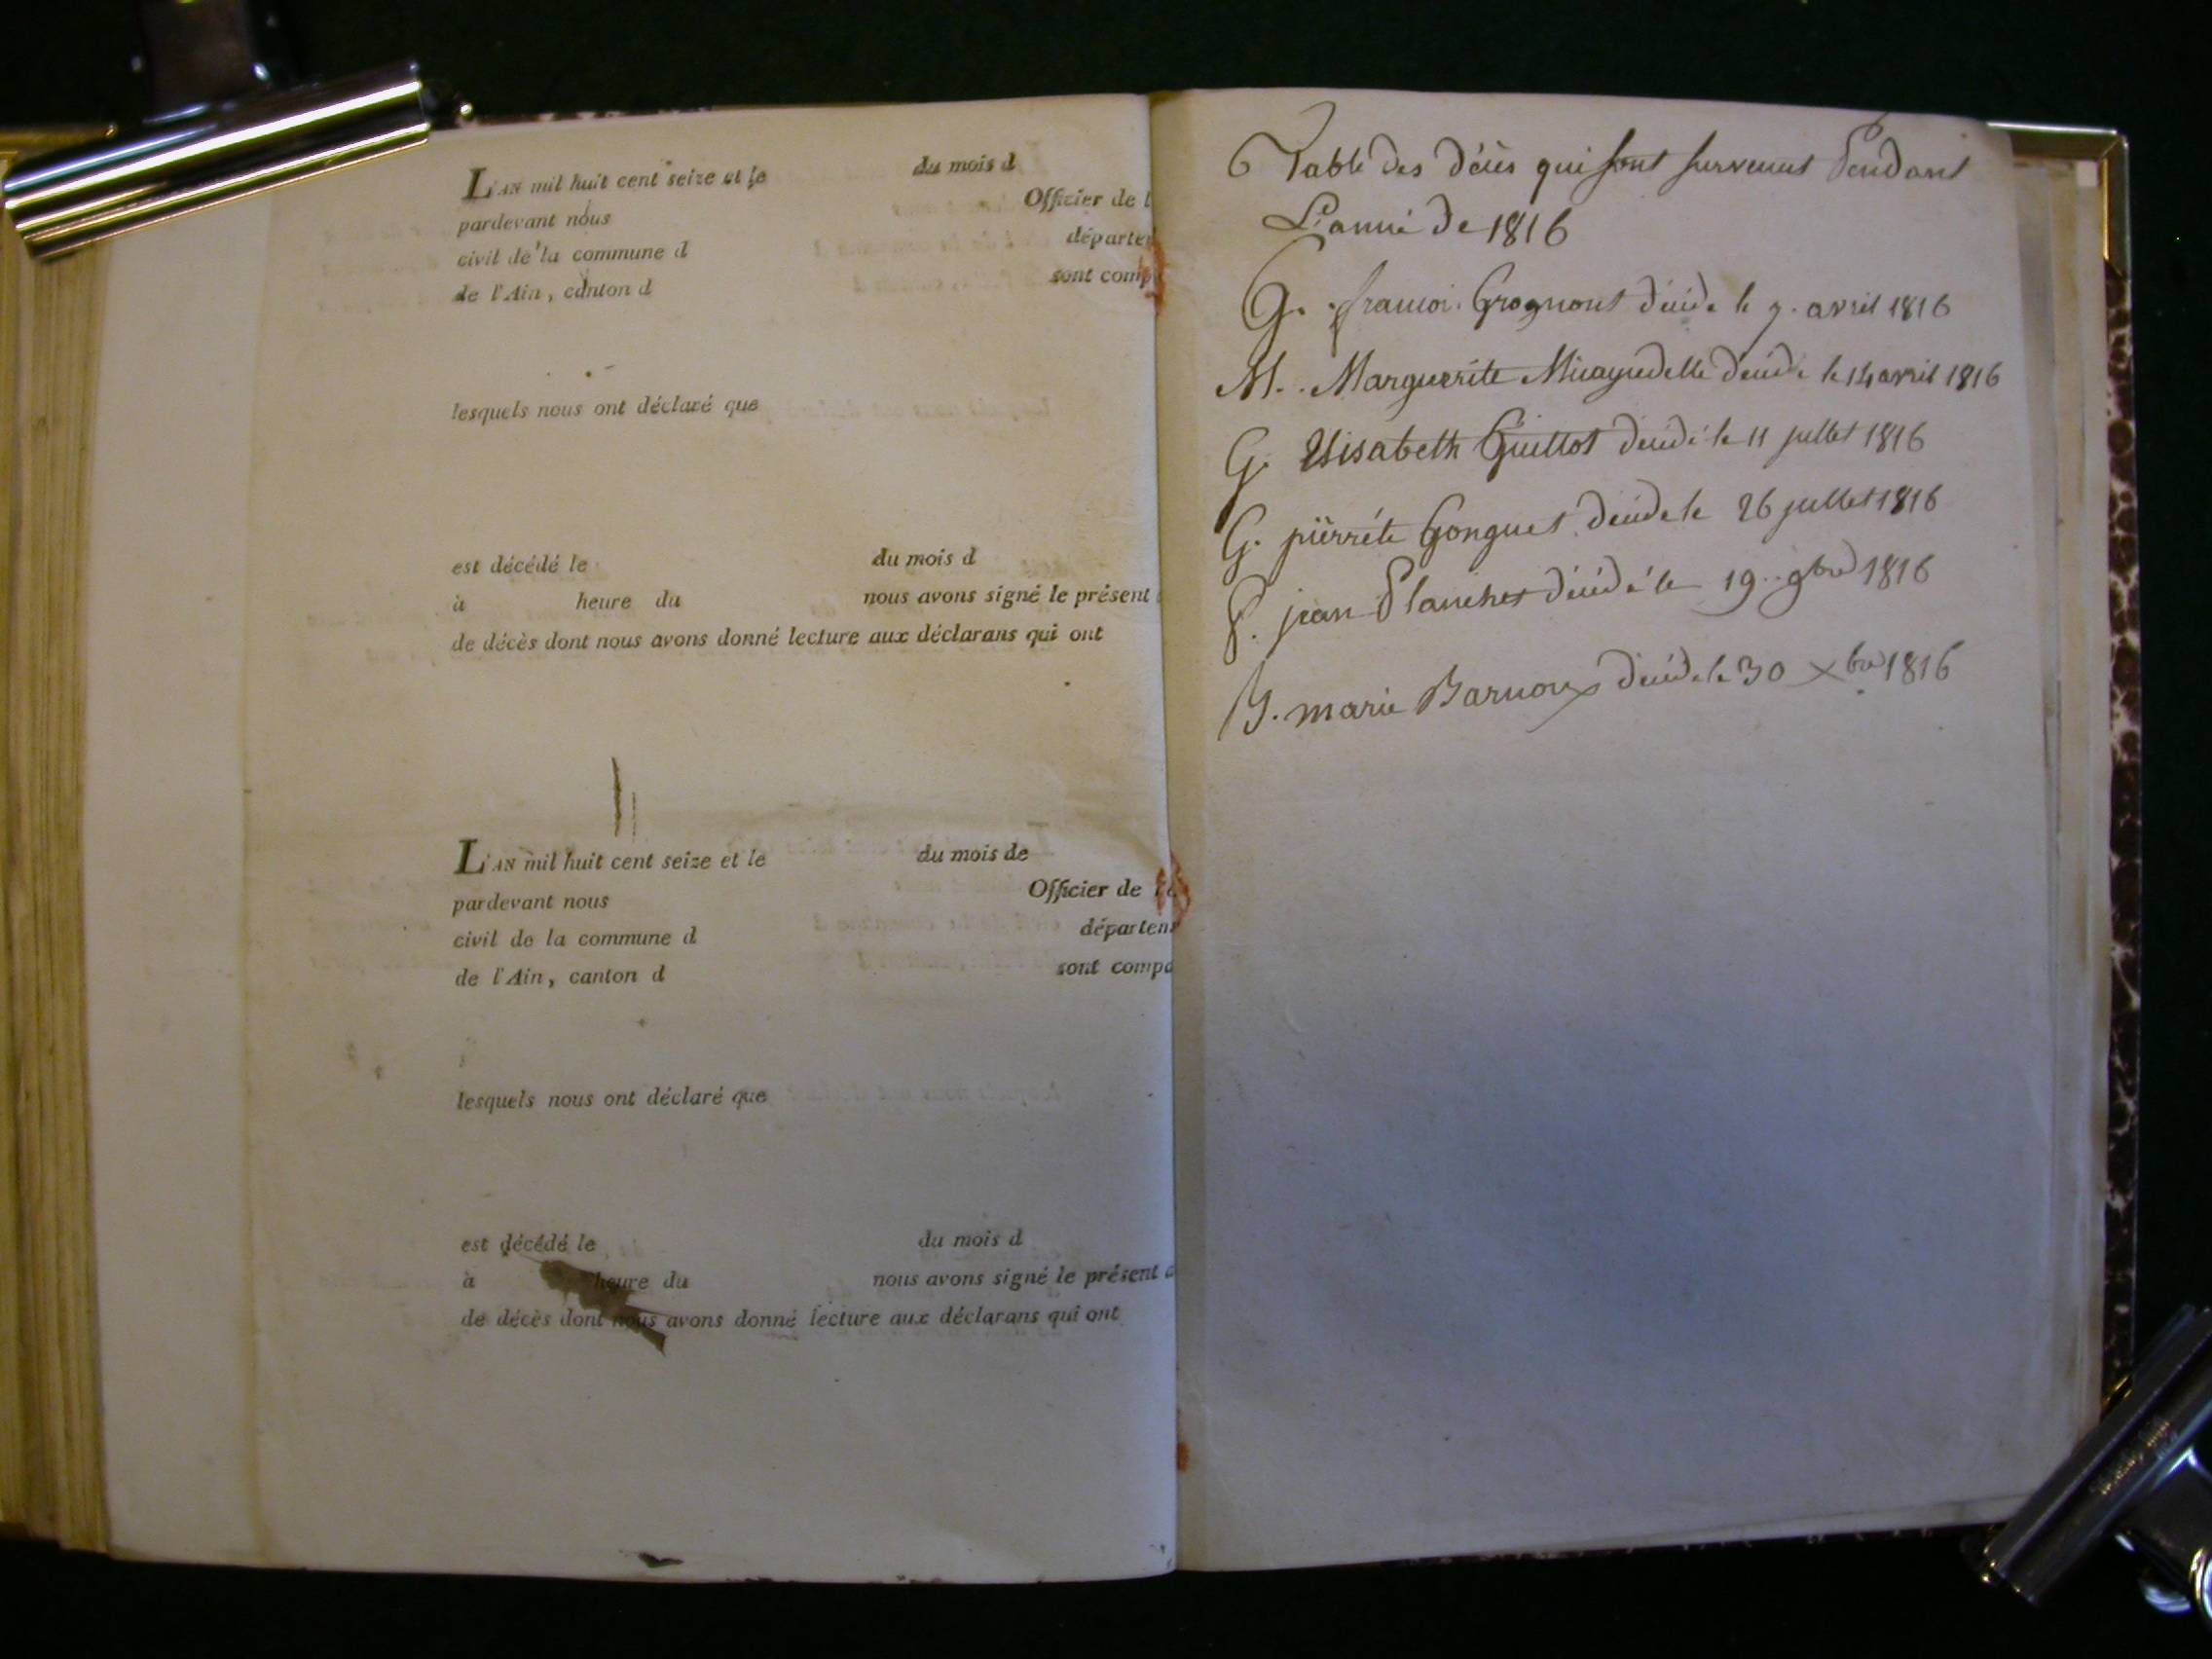 L'AN mil huit cent seize et le du mois d
pardevant nous Officier de l
civil de la commune d départe
de l'Ain, canton d sont comp
lesquels nous ont déclaré que
est décédé le du mois d
à heure du nous avons signé le présent
de décès dont nous avons donné lecture aux déclarans qui ont
L'AN mil huit cent seize et le du mois de
pardevant nous Officier de l'é
civil de la commune d départem
de l'Ain, canton d sont compa
lesquels nous ont déclaré que
est décédé le du mois d
à heure du nous avons signé le présent a
de décès dont nous avons donné lecture aux déclarans qui ont
Table des déces qui sont survenus Pendant
L'anné de 1816
G. francoi Grognont décéde le 9. avril 1816
M. Marguerite décéde le 14 avril 1816
G. Elisabeth Guillot décédé le 11 juillet 1816
G. pierréte Gonguet décéde le 26 juillet 1816
P. jean Planchet décédé le 19 9bre 1816
B. marie décéde le 30 Xbre 1816